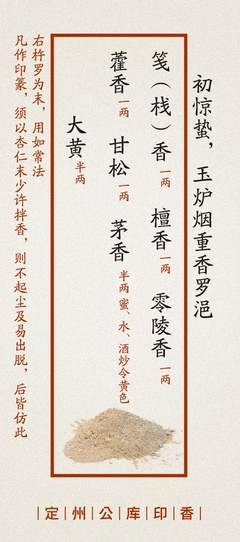 初惊蛰，玉炉烟重香罗浥
笺（栈）香一两 檀香一两 零陵香一两
藿香一两 甘松一两 茅香半两 蜜、水、酒炒令黄色
大黄半两
右杵罗为末，用如常法
凡作印篆，须以杏仁末少许拌香，则不起尘及易出脱，后皆仿此
|定|州|公|库|印|香|